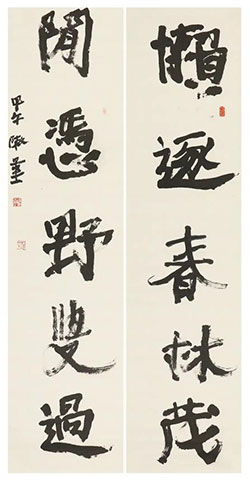 懶逐春林茂
閒憑野叟過
甲午